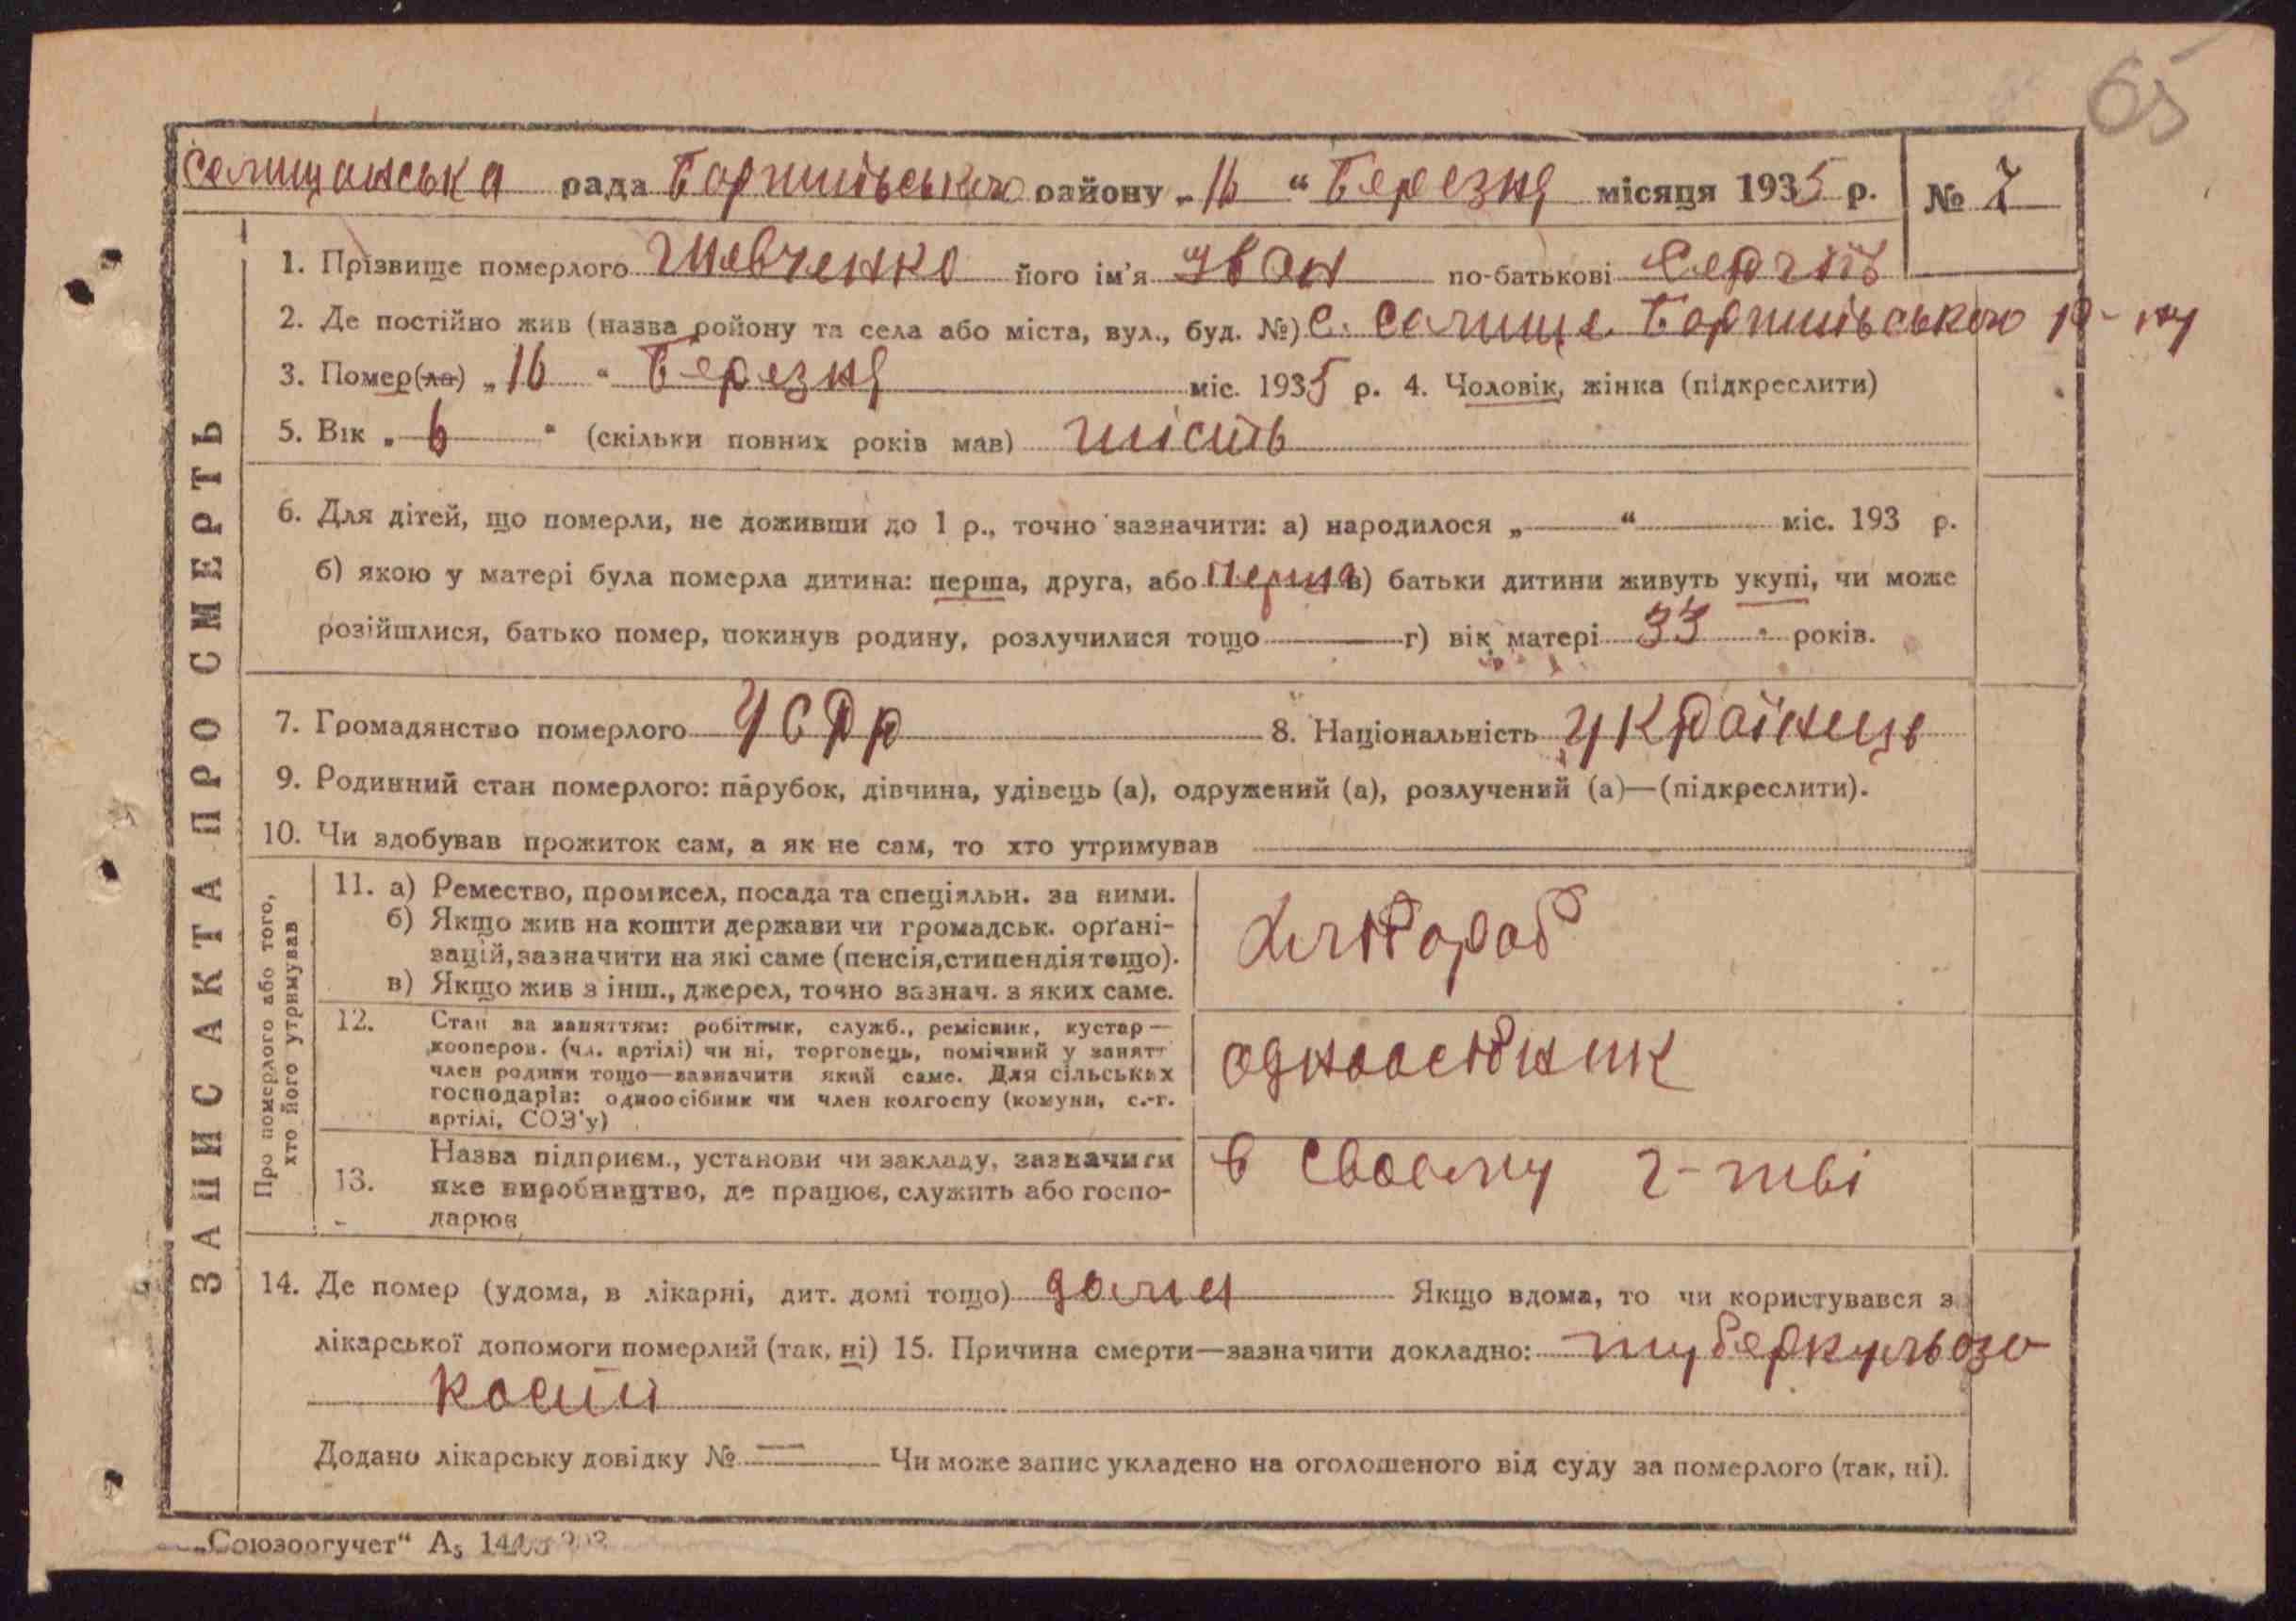 65
Селищанська рада Баришівського району „16“ Березня місяця 1935 р. № 7
ЗАПИС АКТА ПРО СМЕРТЬ
1. Прізвище померлого Шевченко його ім'я Іван по-батькові Сергіїв
2. Де постійно жив (назва ройону та села або міста, вул., буд. №) С. Селище Баришівського р-ну
3. Помер(ла) „16“ Березня міс. 1935 р. 4. Чоловік, жінка (підкреслити)
5. Вік „6“ (скільки повних років мав) шість
6. Для дітей, що померли, не доживши до 1 р., точно зазначити: а) народилося „—“ міс. 193 р.
б) якою у матері була померла дитина: перша, друга, або Перша в) батьки дитини живуть укупі, чи може
розійшлися, батько помер, покинув родину, розлучилися тощо — г) вік матері 33 років.
7. Громадянство померлого УСРР 8. Національність Українець
9. Родинний стан померлого: парубок, дівчина, удівець (а), одружений (а), розлучений (а)—(підкреслити).
10. Чи здобував прожиток сам, а як не сам, то хто утримував
Про померлого або того,
хто його утримував
11. а) Ремество, промисел, посада та спеціяльн. за ними.
б) Якщо жив на кошти держави чи громадськ. орґані-
зацій, зазначити на які саме (пенсія, стипендія тощо).
в) Якщо жив з інш., джерел, точно зазнач. з яких саме.
Хлібороб
12. Стан за заняттям: робітник, служб., ремісник, кустар—
кооперов. (чл. артілі) чи ні, торговець, помічний у занятт
член родини тощо—зазначити який саме. Для сільських
господарів: одноосібник чи член колгоспу (комуни, с.-г.
артілі, СОЗ'у)
одноосібник
13. Назва підприєм., установи чи закладу, зазначити
яке виробництво, де працює, служить або госпо-
дарює
в своєму г-тві
14. Де помер (удома, в лікарні, дит. домі тощо) дома Якщо вдома, то чи користувався з
лікарської допомоги померлий (так, ні) 15. Причина смерти—зазначити докладно: туберкульозо
кости
Додано лікарську довідку № — Чи може запис укладено на оголошеного від суду за померлого (так, ні).
„Союзоргучет“ А₅